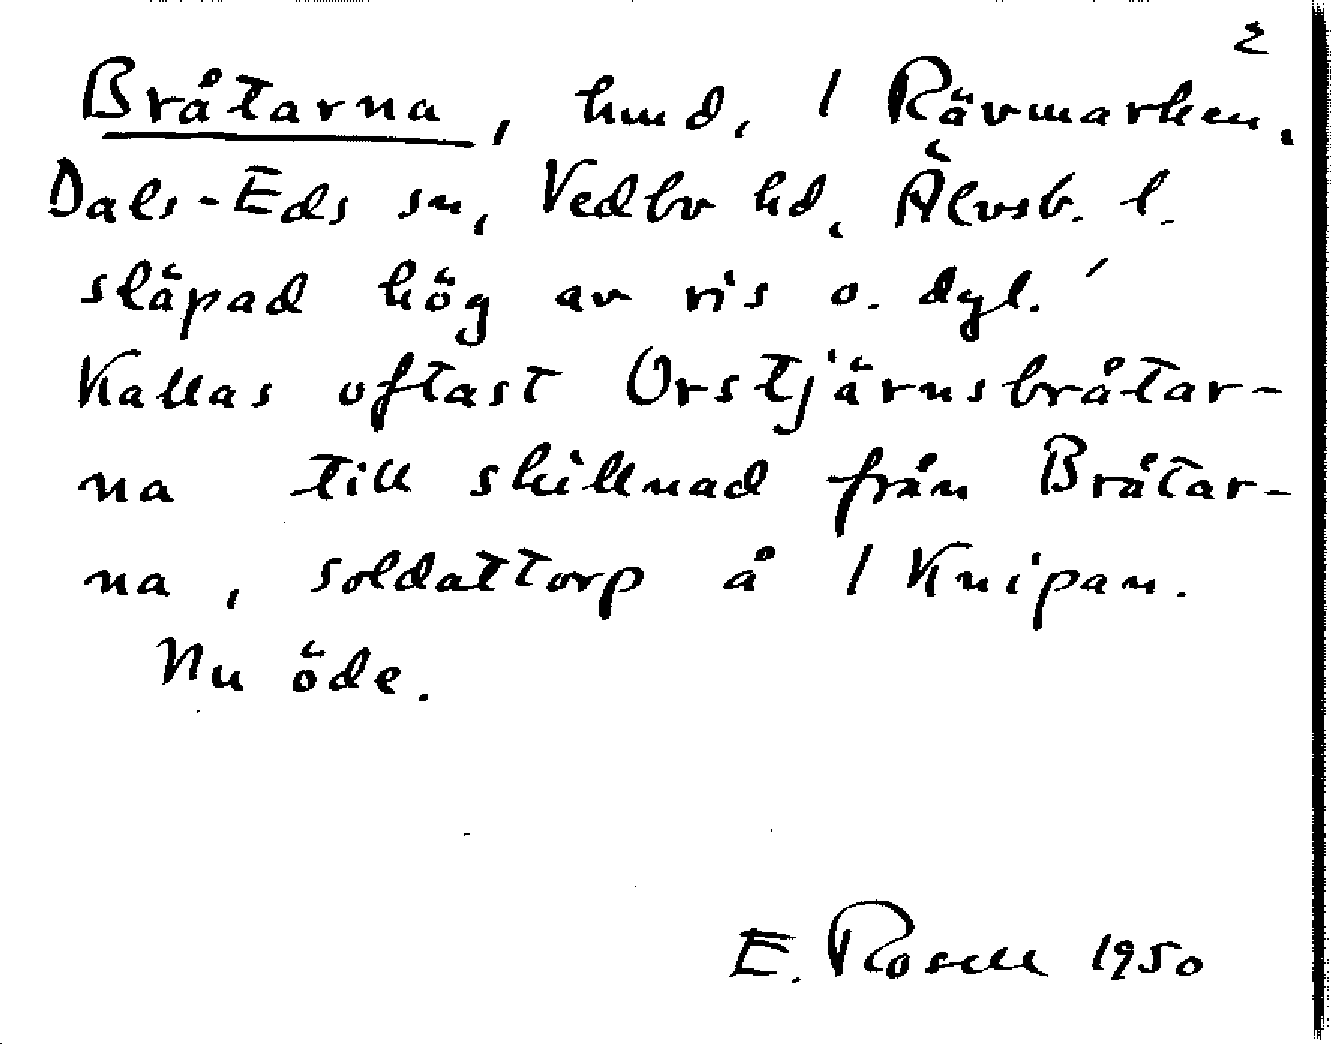 2
Bråtarna, hmd, 1 Rävmarken,
Dals-Eds sn, Vedbo hd, Älvsb. l.
släpad hög av ris o. dyl.'
Kallas oftast Orstjärnsbråtar-
na till skillnad från Bråtar-
na, soldattorp å 1 Knipan.
Nu öde.
E. Rosell 1950